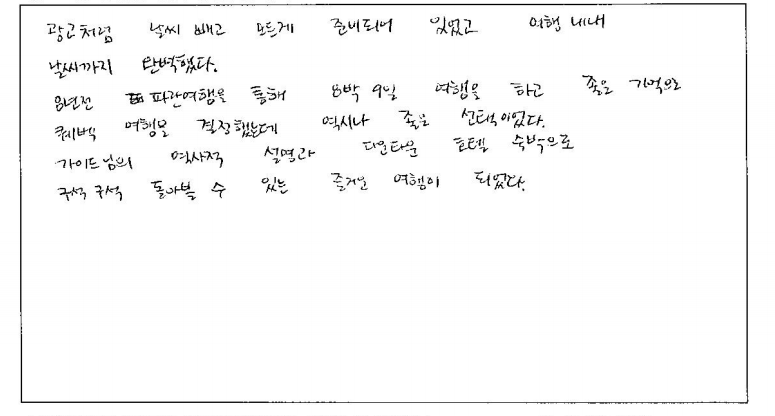 광고처럼 날씨 빼고 모든게 준비되어 있었고 여행 내내
날씨까지 완벽했다.
8년전 파란여행을 통해 8박 9일 여행을 하고 좋은 기억으로
퀘벡 여행을 결정했는데 역시나 좋은 선택이었다.
가이드님의 역사적 설명과 다운타운 호텔 숙박으로
구석구석 돌아볼 수 있는 즐거운 여행이 되었다.